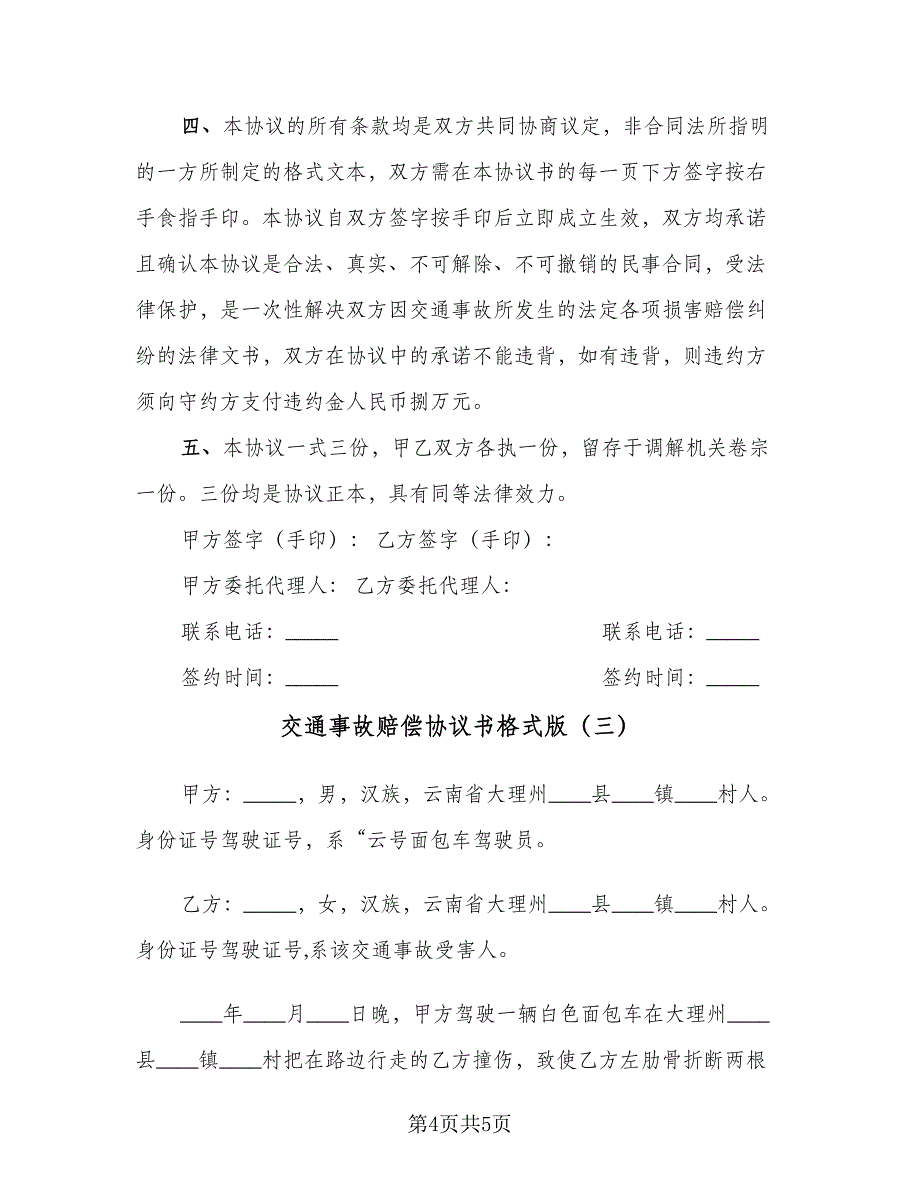 四、本协议的所有条款均是双方共同协商议定，非合同法所指明
的一方所制定的格式文本，双方需在本协议书的每一页下方签字按右
手食指手印。本协议自双方签字按手印后立即成立生效，双方均承诺
且确认本协议是合法、真实、不可解除、不可撤销的民事合同，受法
律保护，是一次性解决双方因交通事故所发生的法定各项损害赔偿纠
纷的法律文书，双方在协议中的承诺不能违背，如有违背，则违约方
须向守约方支付违约金人民币捌万元。
五、本协议一式三份，甲乙双方各执一份，留存于调解机关卷宗
一份。三份均是协议正本，具有同等法律效力。
甲方签字（手印）： 乙方签字（手印）：
甲方委托代理人： 乙方委托代理人：
联系电话：_____ 联系电话：_____
签约时间：_____ 签约时间：_____
交通事故赔偿协议书格式版（三）
甲方：_____，男，汉族，云南省大理州____县____镇____村人。
身份证号驾驶证号，系“云号面包车驾驶员。
乙方：_____，女，汉族，云南省大理州____县____镇____村人。
身份证号驾驶证号,系该交通事故受害人。
____年____月____日晚，甲方驾驶一辆白色面包车在大理州____
县____镇____村把在路边行走的乙方撞伤，致使乙方左肋骨折断两根
第4页共5页